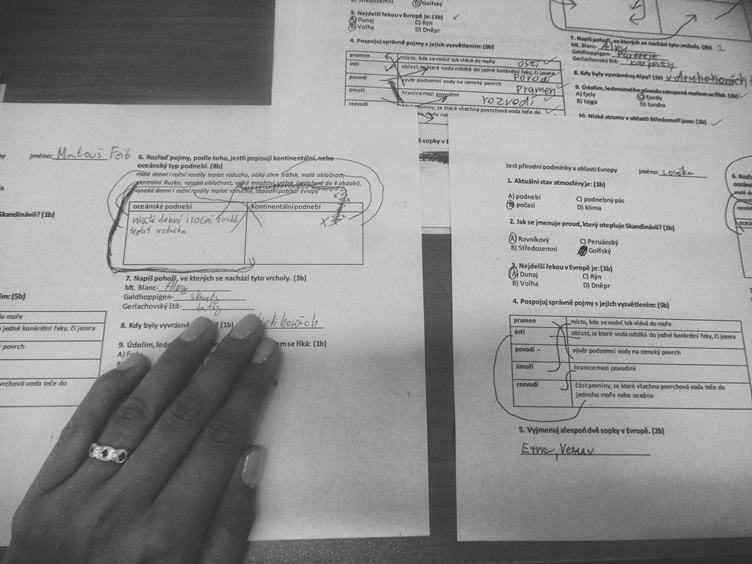 D) Golfský
3. Nejdelší řekou v Evropě je: (1b)
A) Dunaj C) Rýn
B) Volha D) Dněpr
4. Pospojuj správně pojmy s jejich vysvětlením: (5b)
pramen místo, kde se vodní tok vlévá do moře ústí
ústí oblast, ze které voda odtéká do jedné konkrétní řeky, či jezera povodí
povodí vývěr podzemní vody na zemský povrch pramen
úmoří hranice mezi povodími rozvodí
rozvodí část pevniny, ze které všechna povrchová voda teče do
7. Napiš pohoří, ve kterých se nachází tyto vrcholy. (3b) 2
Mt. Blanc- Alpy
Galdhoppigen-
Gerlachovský štít- Karpaty
8. Kdy byly vyvrásněny Alpy? (1b) v druhohorách
9. Údolím, ledovcového původu zatopené mořem se říká: (1b)
A) fjely C) fjordy
B) tajga D) tundra
10. Nízké stromy v oblasti Středomoří jsou: (1b)
jméno: Matouš
6. Rozřaď pojmy, podle toho, jestli popisují kontinentální, nebo
oceánský typ podnebí. (8b)
malé denní i roční rozdíly teplot vzduchu, nízký úhrn srážek, malá oblačnost,
centrální Rusko, vysoká oblačnost, velké množství srážek (rozložené do 4 období),
vysoké denní i roční rozdíly teplot vzduchu, západní pobřeží Evropy
oceánské podnebí kontinentální podnebí
malé denní i roční rozdí
teplot vzduchu
7. Napiš pohoří, ve kterých se nachází tyto vrcholy. (3b)
Mt. Blanc- Alpy
Galdhoppigen-
Gerlachovský štít- tatry
8. Kdy byly vyvrásněn ? (1b) etihorách
9. Údolím, led mořem se říká: (1b)
A) fjel
B)
Skandinávii? (1b)
ím: (5b)
do moře
o jedné konkrétní řeky, či jezera
povrch
vrchová voda teče do
test přírodní podmínky a oblasti Evropy jméno:
1. Aktuální stav atmosféry je: (1b)
A) podnebí C) podnebný pás
B) počasí D) klima
2. Jak se jmenuje proud, který otepluje Skandinávii? (1b)
A) Rovníkový C) Peruánský
B) Středozemní D) Golfský
3. Nejdelší řekou v Evropě je: (1b)
A) Dunaj C) Rýn
B) Volha D) Dněpr
4. Pospojuj správně pojmy s jejich vysvětlením: (5b)
pramen místo, kde se vodní tok vlévá do moře
ústí oblast, ze které voda odtéká do jedné konkrétní řeky, či jezera
povodí - vývěr podzemní vody na zemský povrch
úmoří hranice mezi povodími
rozvodí část pevniny, ze které všechna povrchová voda teče do
jednoho moře nebo oceánu
5. Vyjmenuj alespoň dvě sopky v Evropě. (2b)
Etna, Vesuv
6. Rozřaď